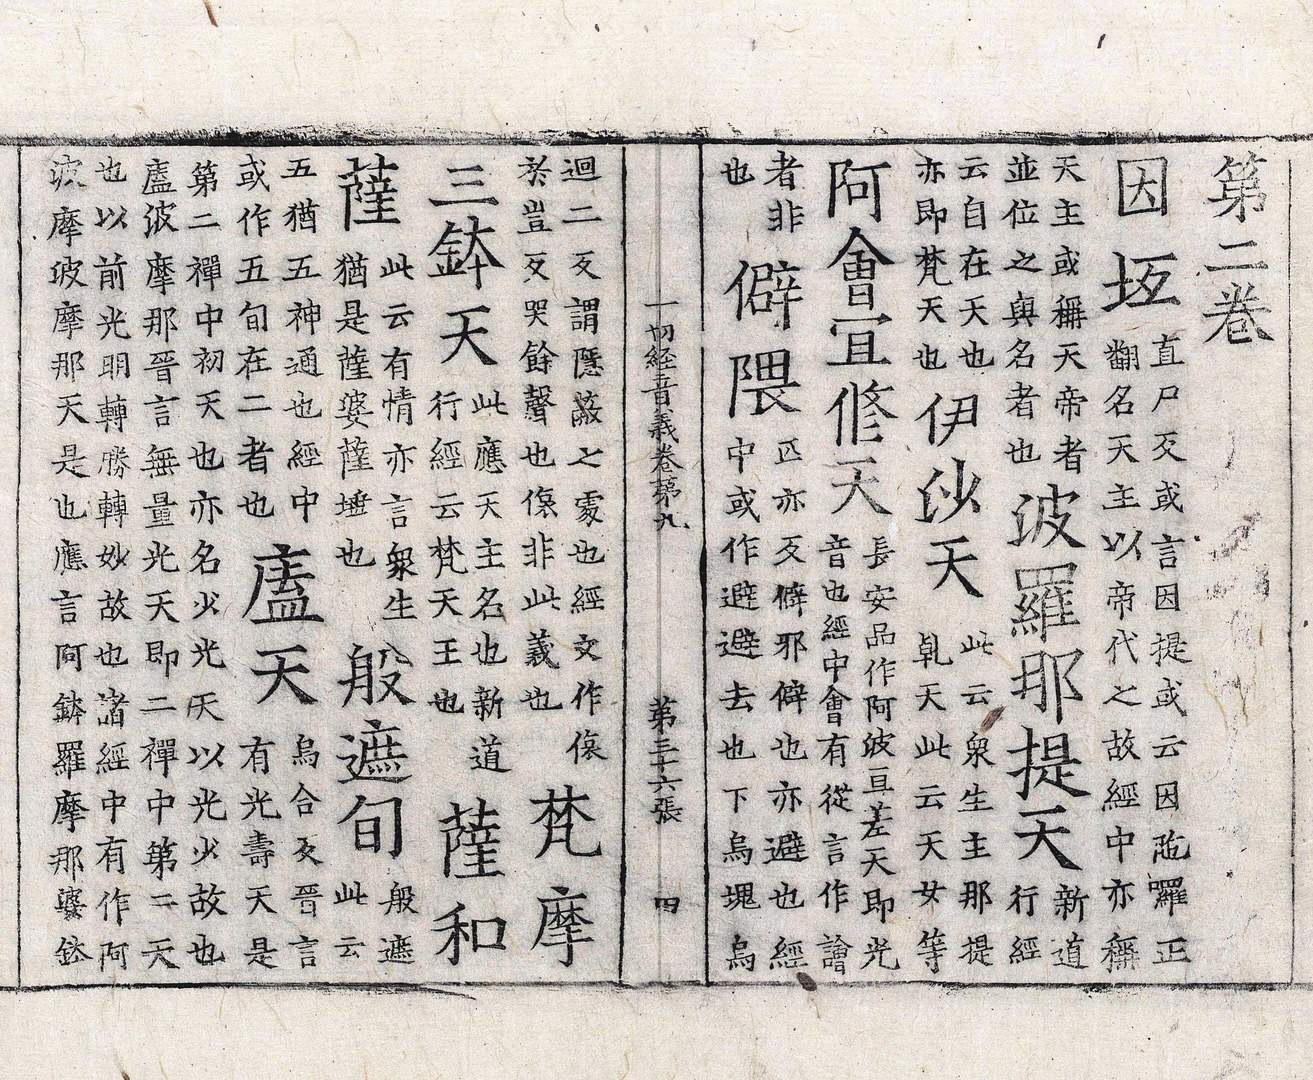 第二卷
因坘
直尸反或言因提或云因陁羅正
翻名天主以帝代之故經中亦稱
天主或稱天帝者
並位之與名者也
波羅耶提天
新道
行經
云自在天也
亦即梵天也
伊沙天
此云衆生主那提
乹天此云天女等
阿會亘修天
長安品作阿波亘差天即光
音也經中會有從言作譮
者非
也
僻隈
匹亦反僻邪僻也亦避也經
中或作避避去也下烏塊烏
一切經音義卷第九 第三十六張 四
迴二反謂隱蔽之處也經文作偯
於豈反哭餘聲也偯非此義也
梵摩
三鉢天
此應天主名也新道
行經云梵天王也
薩和
薩
此云有情亦言衆生
猶是薩婆薩埵也
般遮旬
般遮
此云
五猶五神通也經中
或作五旬在二者也
廅天
烏合反晉言
有光壽天是
第二禪中初天也亦名少光天以光少故也
廅波摩那晉言無量光天即二禪中第二天
也以前光明轉勝轉妙故也諸經中有作阿
波摩波摩那天是也應言阿鉢羅摩那婆鉢